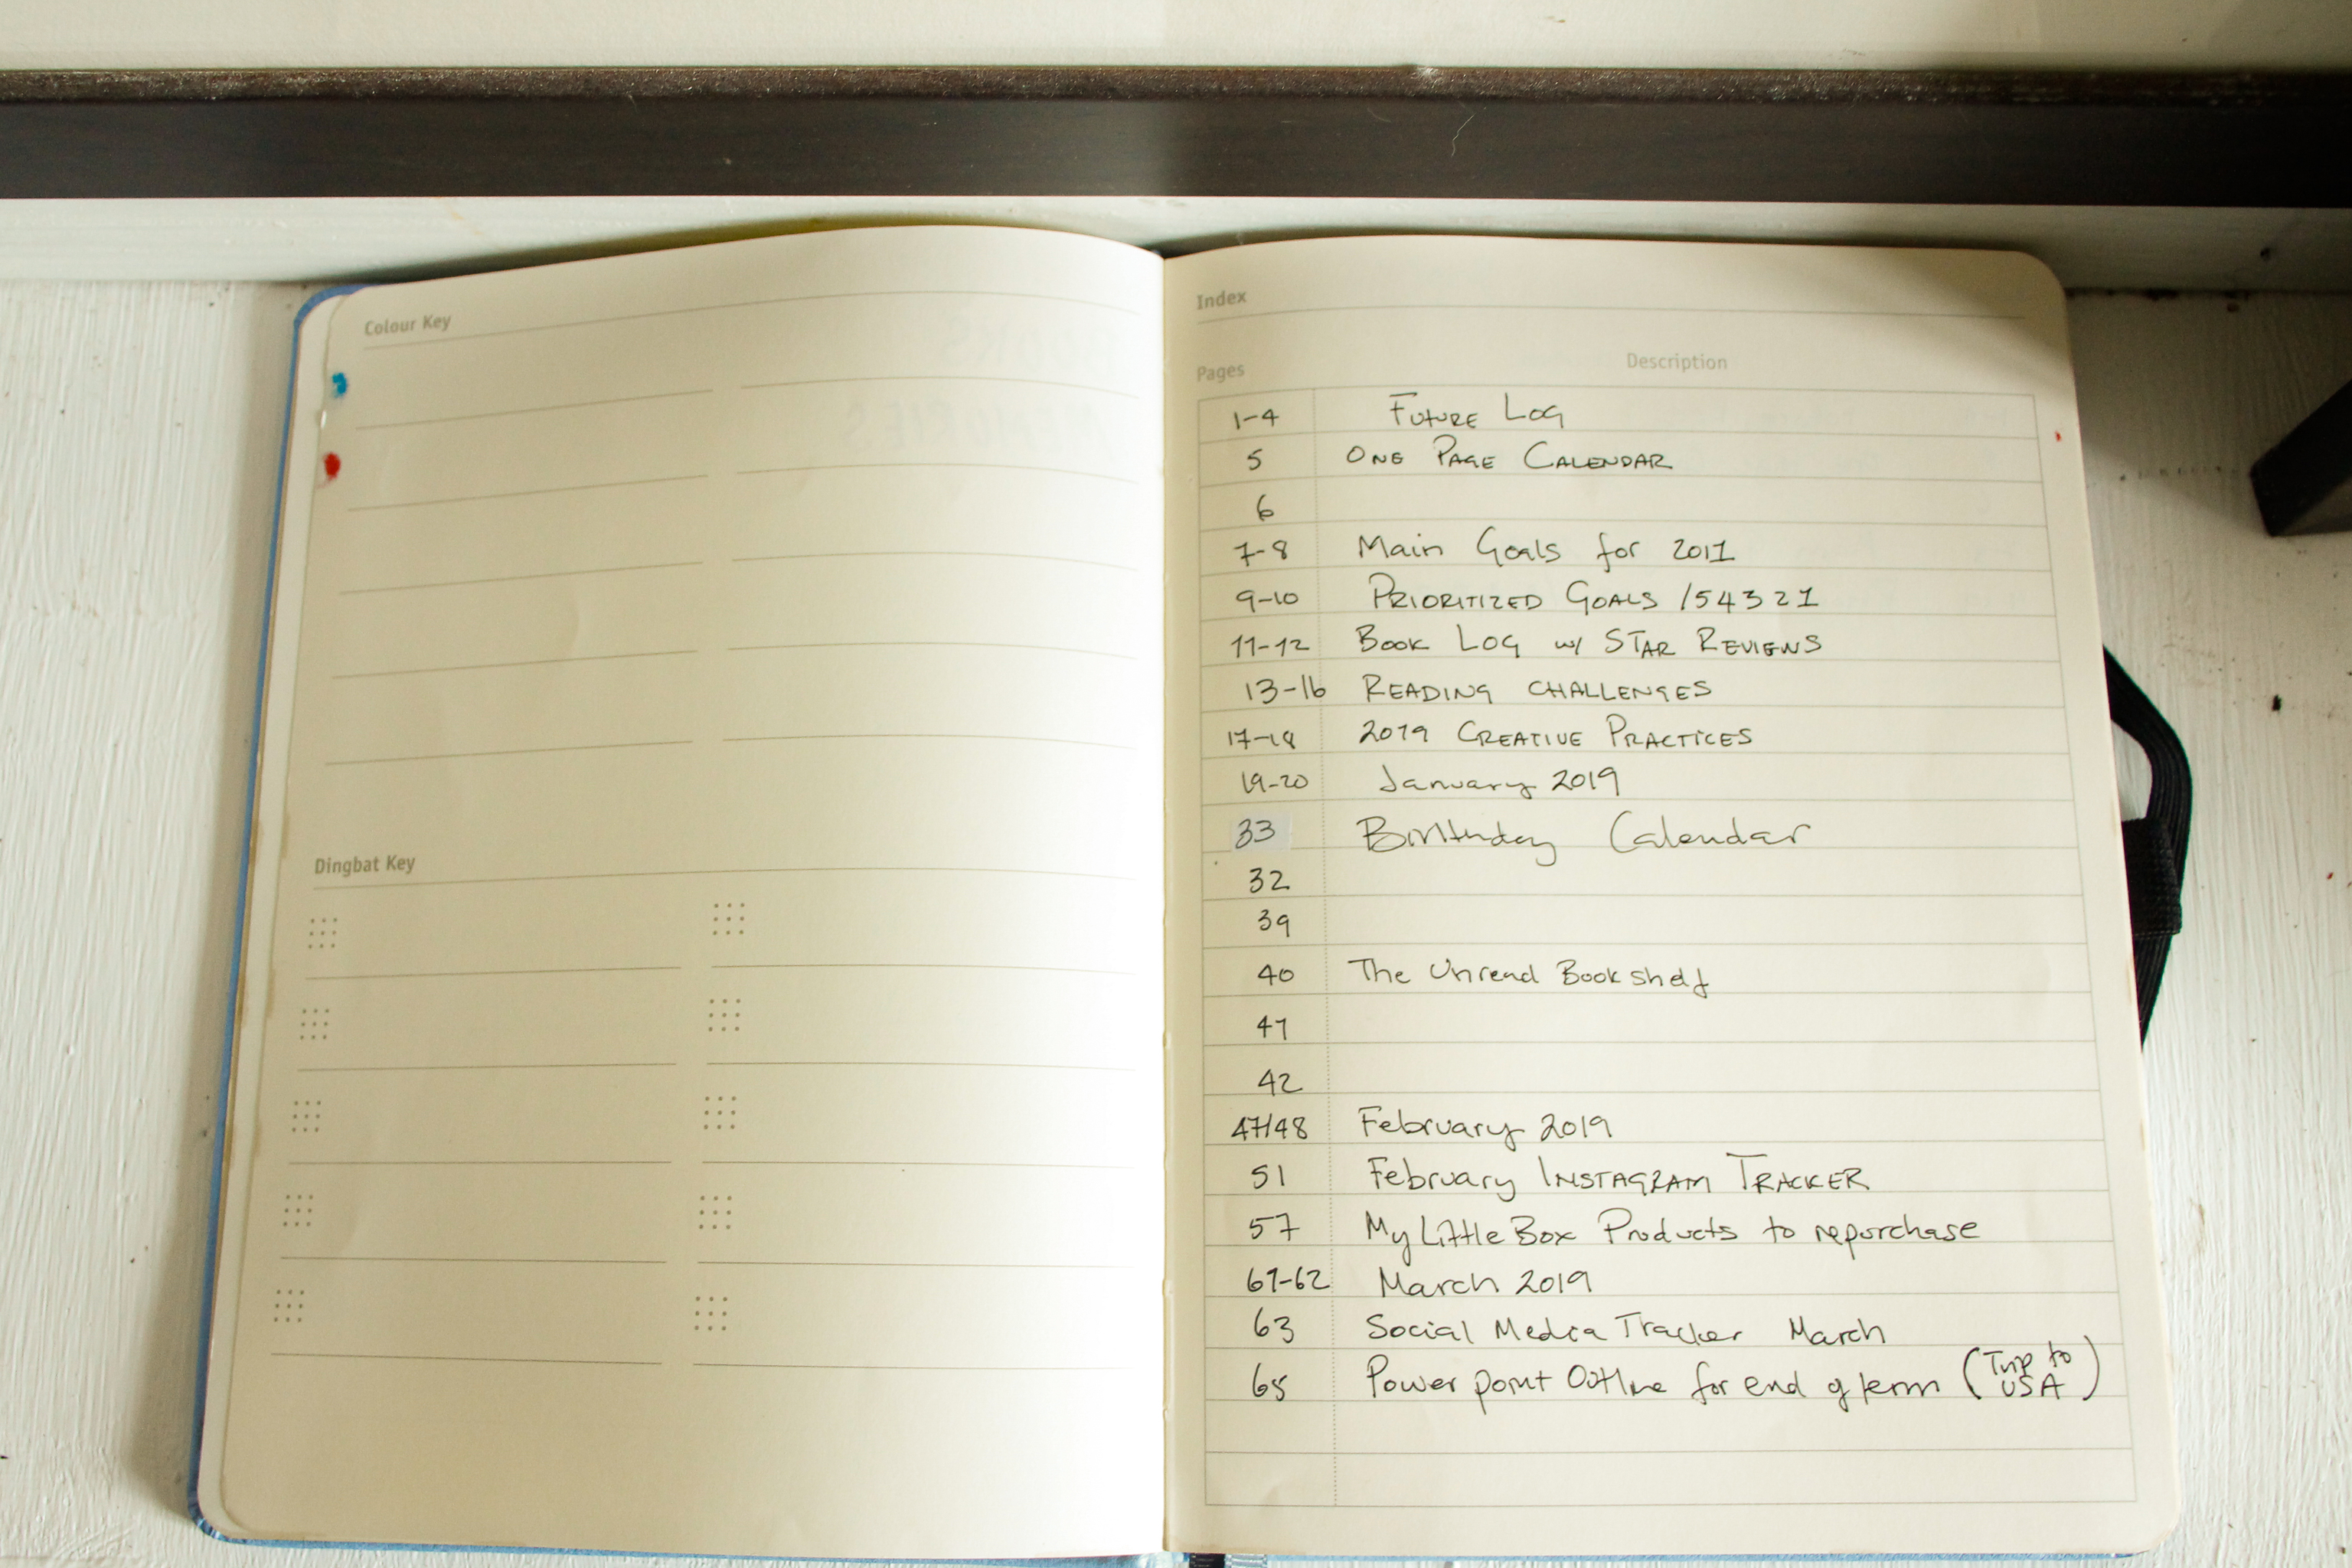 Colour Key
Dingbat Key
Index
Pages Description
1-4 FUTURE LOG
5 ONE PAGE CALENDAR
6
7-8 Main Goals for 2011
9-10 PRIORITIZED GOALS /54321
11-12 BOOK LOG w/ STAR REVIEWS
13-16 READING CHALLENGES
17-18 2019 CREATIVE PRACTICES
19-20 January 2019
33 Birthday Calendar
32
39
40 The Unread Bookshelf
41
42
47/48 February 2019
51 February INSTAGRAM TRACKER
57 My Little Box Products to repurchase
61-62 March 2019
63 Social Media Tracker March
65 Power point Outline for end of term (Trip to USA)